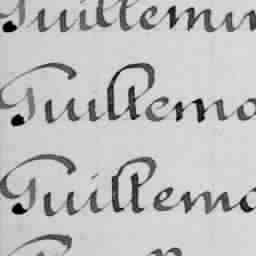 Guillemin
Guillemo
Guillemo